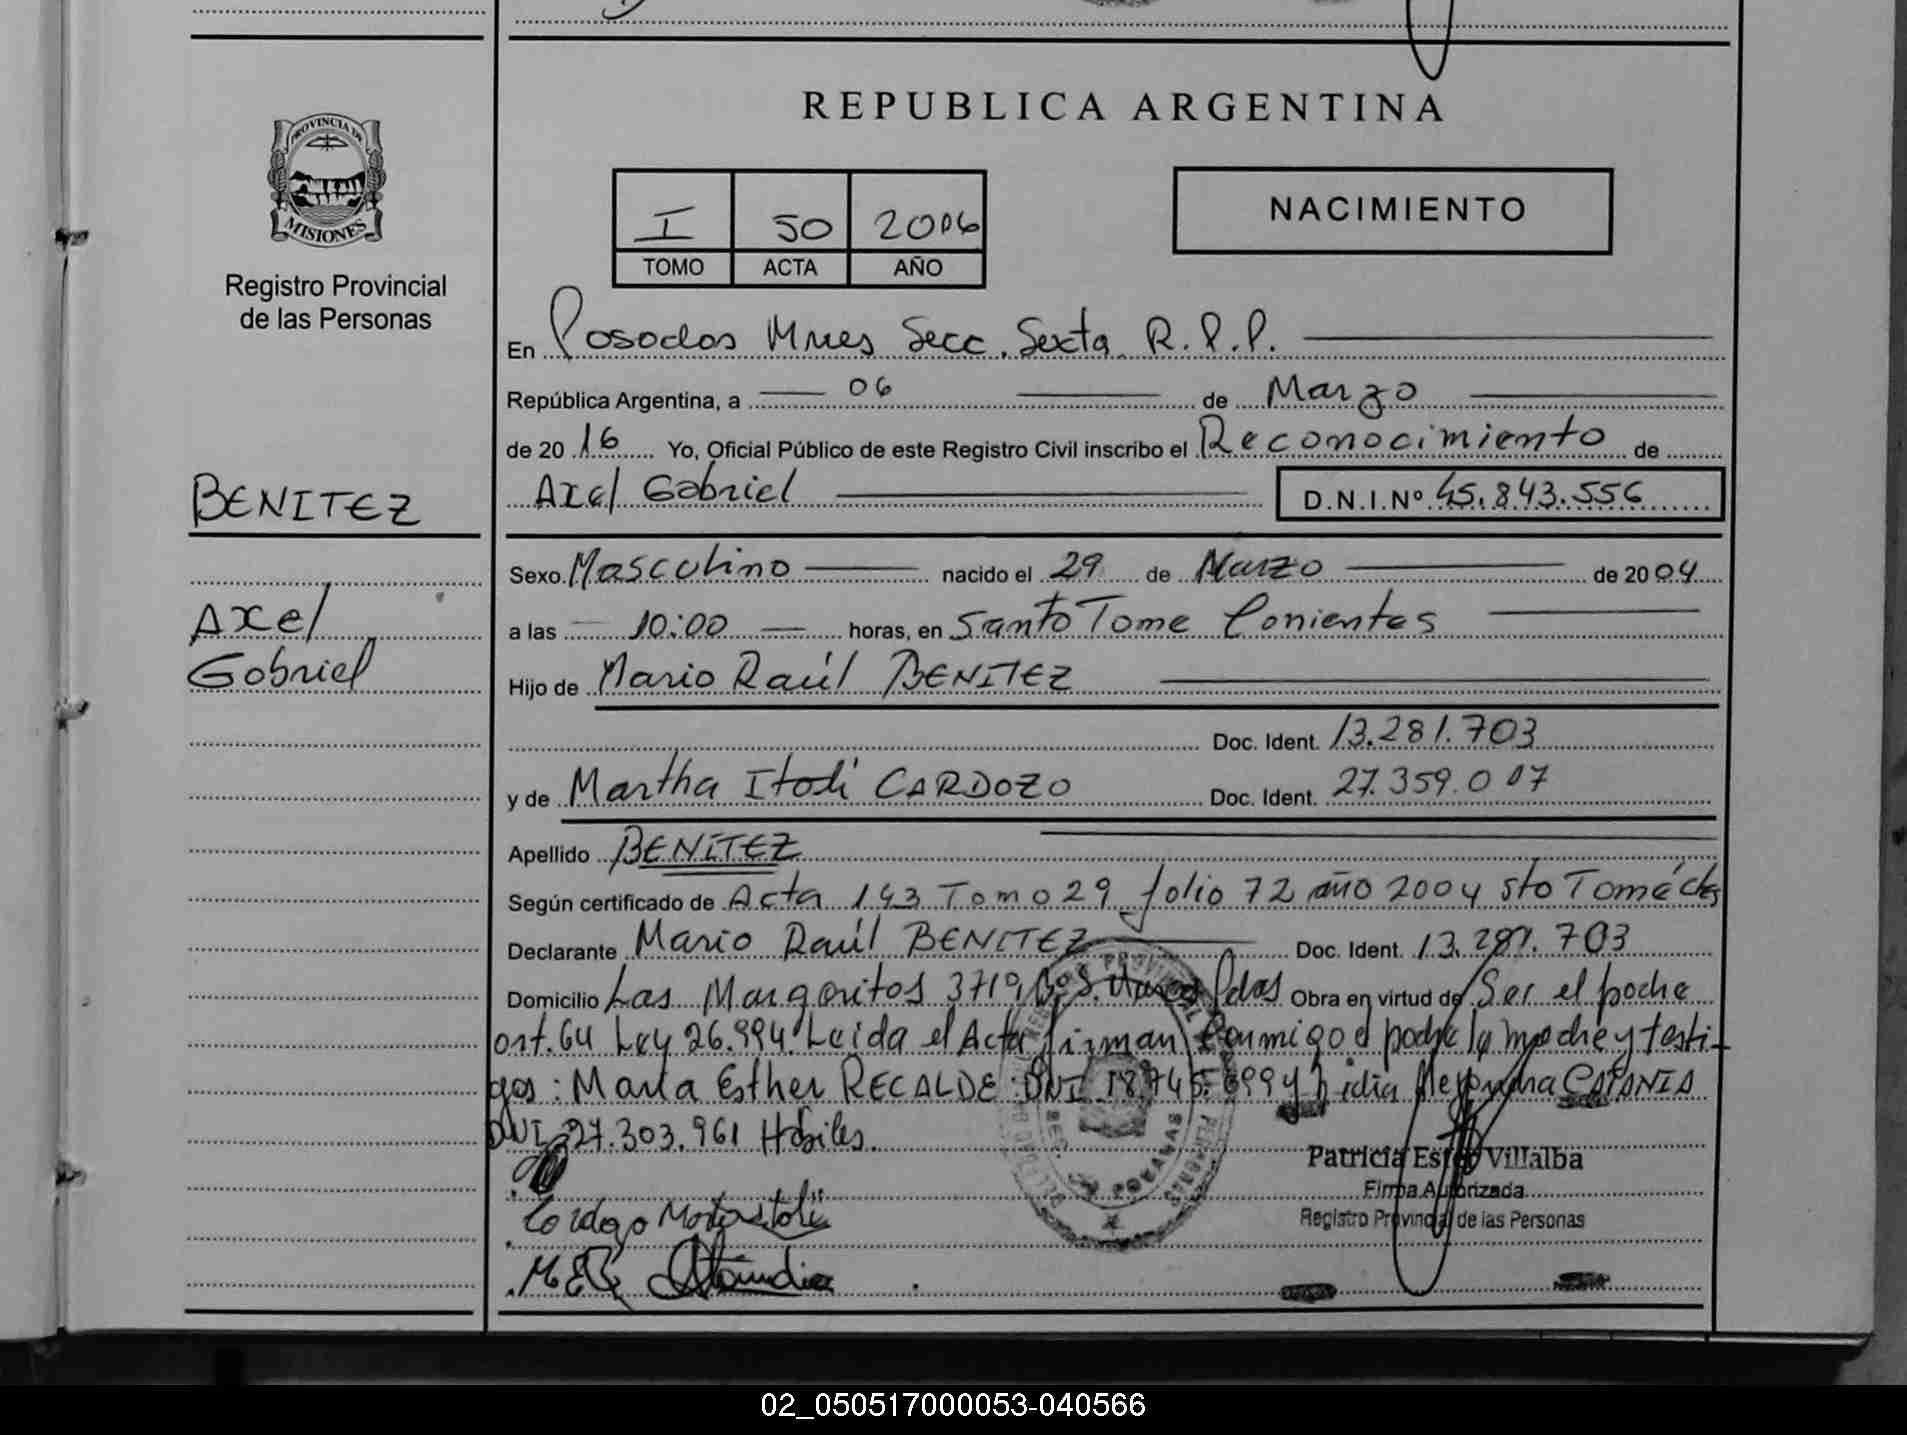 REPUBLICA ARGENTINA
PROVINCIA DE
MISIONES
Registro Provincial
de las Personas
I 50 2006
TOMO ACTA AÑO
NACIMIENTO
En Posadas Mnes Secc. Sexta R.P.P.
República Argentina, a 06 de Marzo
de 2016 Yo, Oficial Público de este Registro Civil inscribo el Reconocimiento de
Axel Gabriel D.N.I.Nº 45.843.556
BENITEZ
Axel
Gabriel
Sexo Masculino nacido el 29 de Marzo de 2004
a las 10:00 horas, en Santo Tome Corrientes
Hijo de Mario Raúl BENITEZ
Doc. Ident. 13.281.703
y de Martha Itatí CARDOZO Doc. Ident. 27.359.007
Apellido BENITEZ
Según certificado de Acta 143 Tomo 29 folio 72 año 2004 Sto Tomé Ctes
Declarante Mario Raúl BENITEZ Doc. Ident. 13.281.703
Domicilio Las Margaritas 3719 Bº S. Pdas Obra en virtud de Ser el padre
art. 64 Ley 26.994. Leida el Acta firman conmigo el padre la madre y testi-
gos: María Esther RECALDE DNI 18.745.699 y Lidia CATANIA
DNI 27.303.961 Hábiles.
Patricia Ester Villalba
Firma Autorizada
Registro Provincial de las Personas
02_050517000053-040566